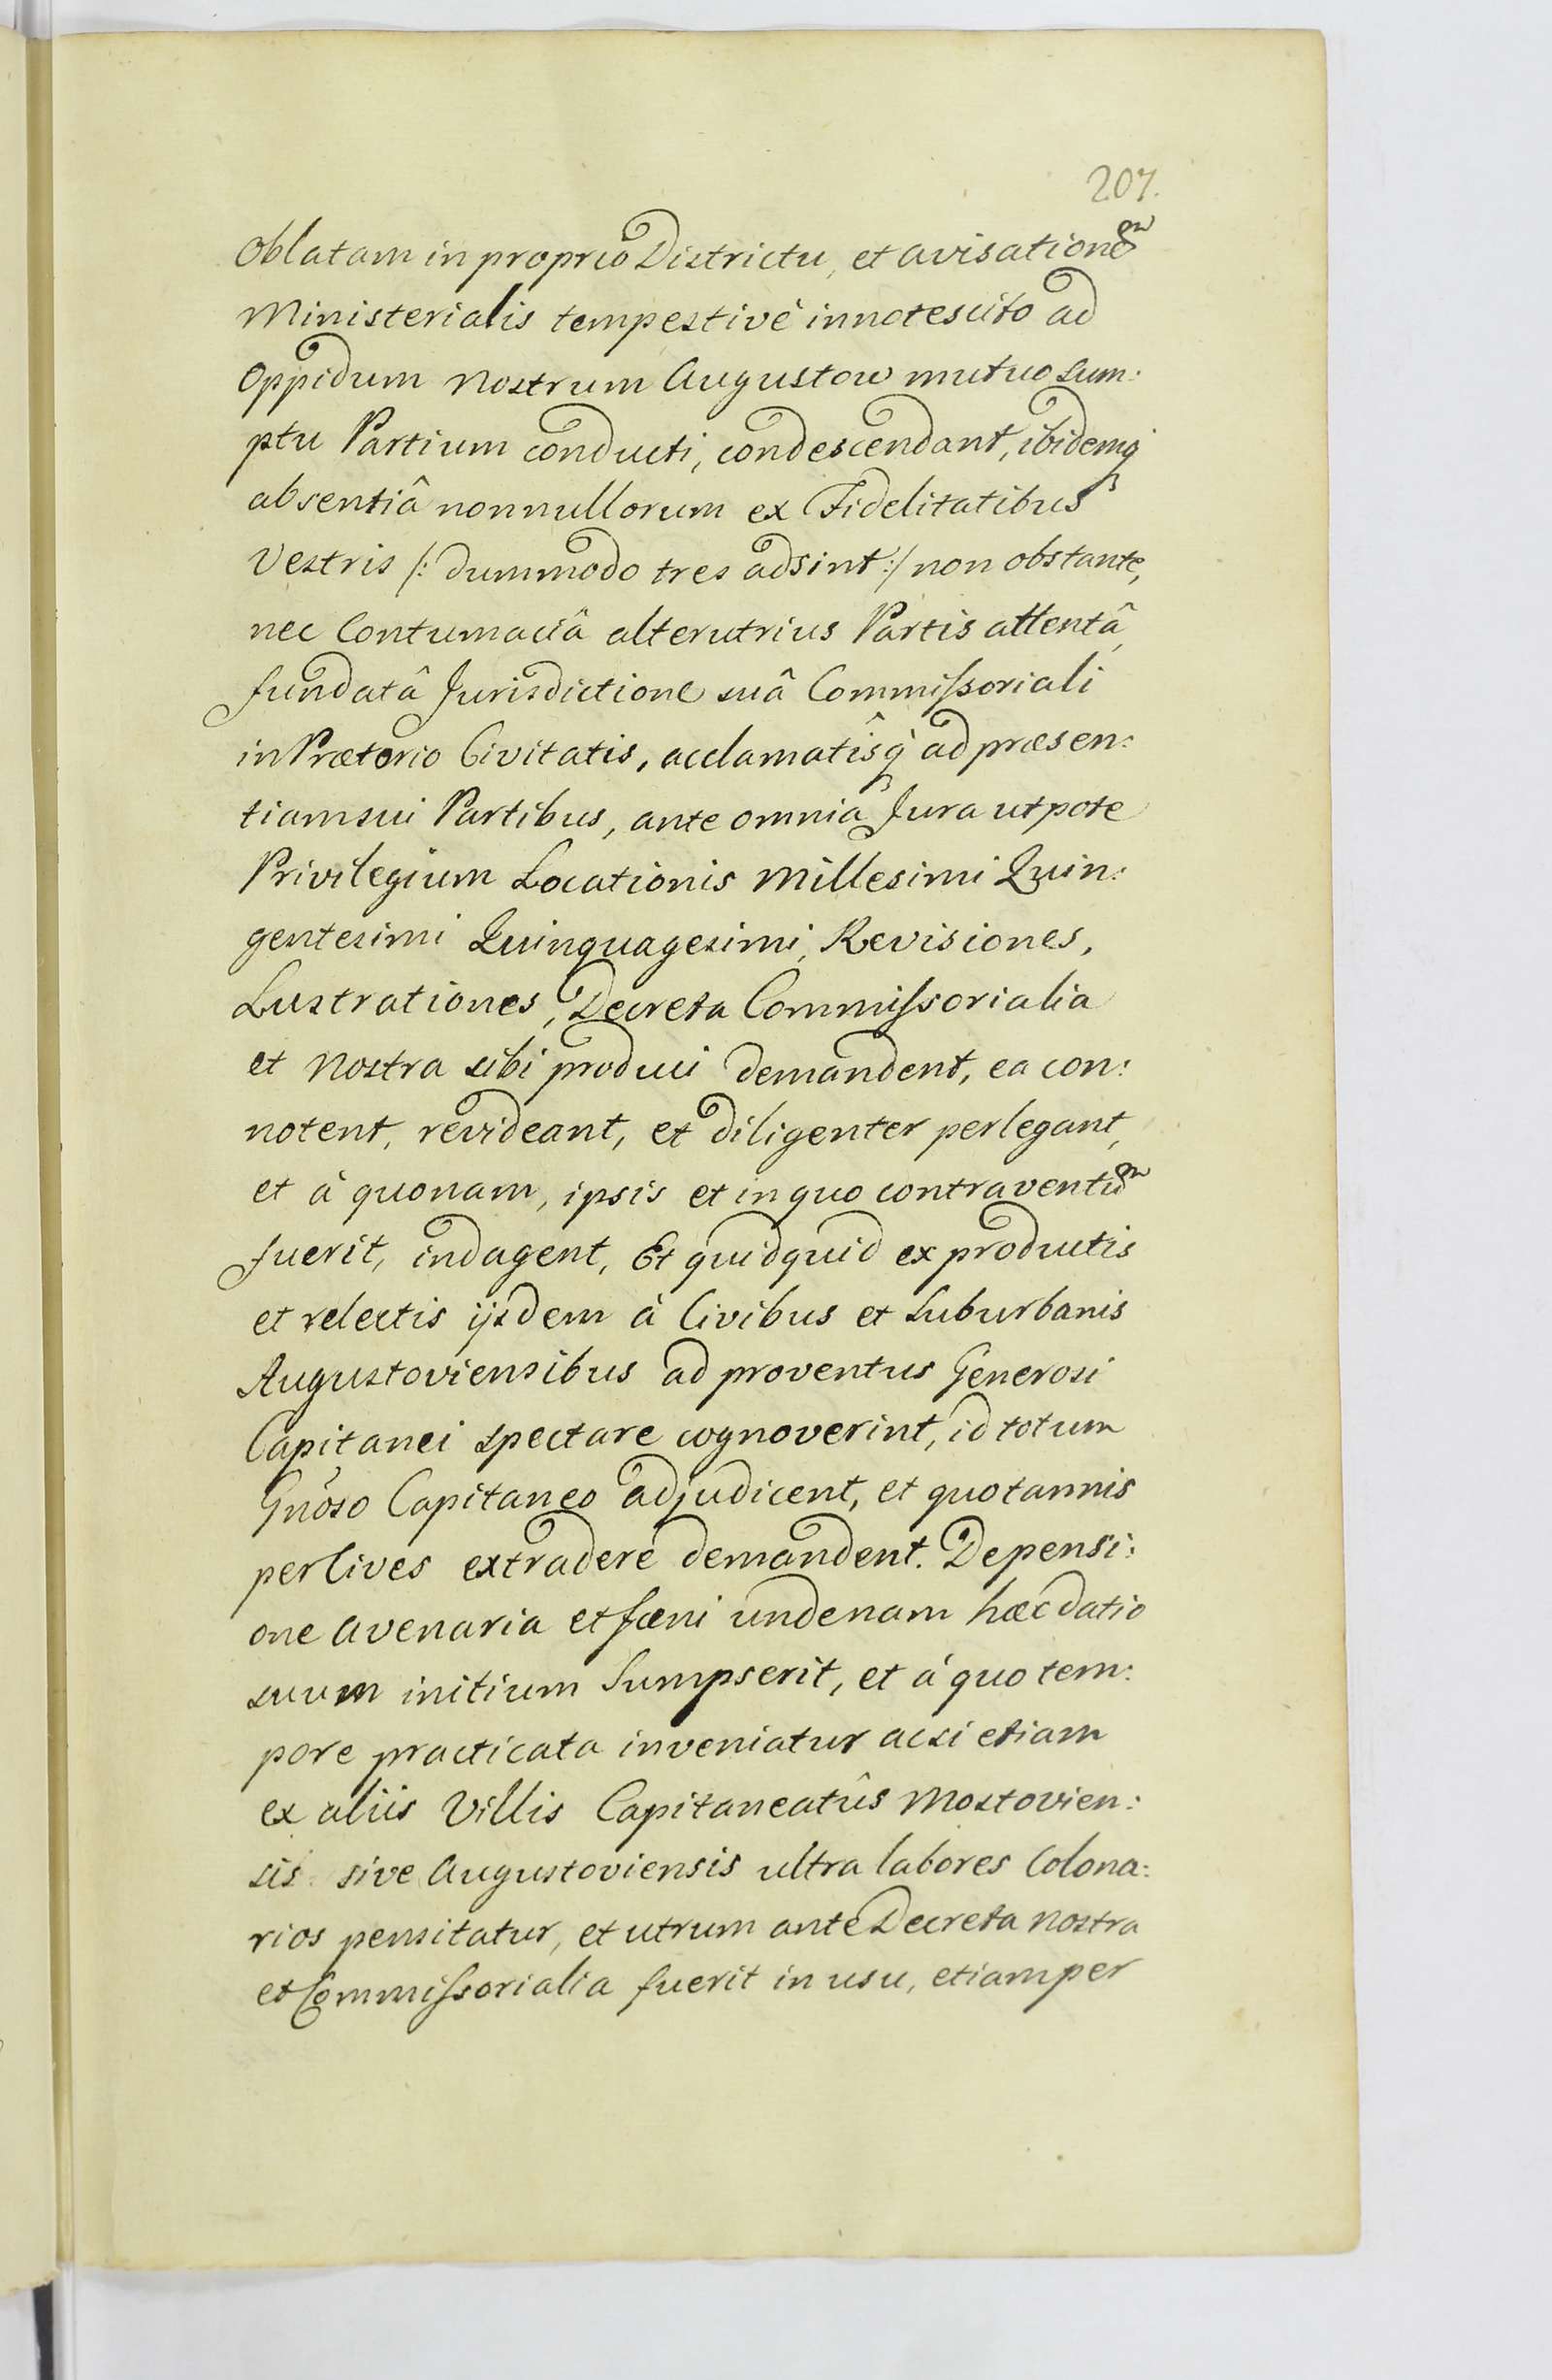 207.
Oblatam in proprio Districtu, et avisationem
Ministerialis tempestivè innotescito ad
Oppidum Nostrum Augustow mutuo sum:
ptu Partium conducti, condescendant, ibidemq
absentiâ nonnullorum ex Fidelitatibus
Vestris /: dummodo tres adsint :/ non obstante,
nec Contumaciâ alterutrius Partis attentâ,
fundatâ Jurisdictione suâ Commissoriali
in Prætorio Civitatis, acclamatîsq ad præsen:
tiam sui Partibus, ante omnia Jura utpote
Privilegium Locationis Millesimi Quin:
gentesimi Quinquagesimi, Revisiones,
Lustrationes, Decreta Commissorialia
et Nostra sibi produci demandent, ea con:
notent, revideant, et diligenter perlegant,
et à quonam, ipsis et in quo contraventum
fuerit, indagent, Et quidquid ex productis
et relectis ijsdem à Civibus et Suburbanis
Augustoviensibus ad proventus Generosi
Capitanei spectare cognoverint, id totum
Gnoso Capitaneo adjudicent, et quotannis
per Cives extradere demandent. De pensi:
one avenaria et fæni undenam hæc datio
suum initium Sumpserit, et à quo tem:
pore practicata inveniatur ac si etiam
ex aliis Villis Capitaneatûs Mostovien:
sis sive Augustoviensis ultra labores Colona:
rios pensitatur, et utrum ante Decreta Nostra
et Commissorialia fuerit in usu, etiam per